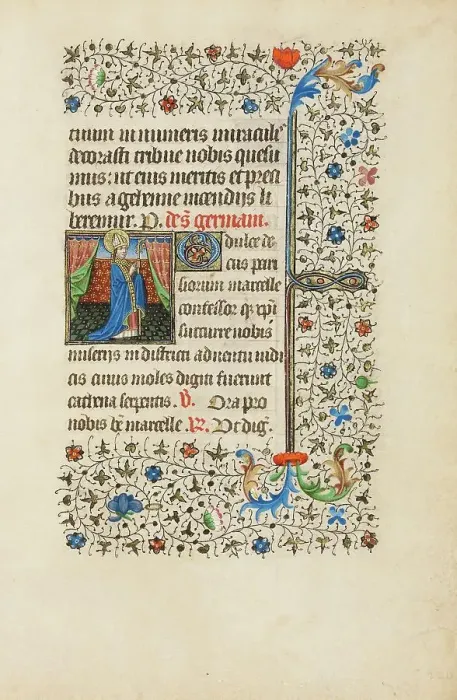 tuum in numeris miracul'
decorasti tribue nobis quesu
mus: ut eius meritis et preci
bus a gehenne incendijs li
beremur. P. de s̄ germani.
O dulce de
cus pari
siorum marcelle
confessor q̄ xp̄i
succurre nobis
miseris in districti adventu iudi
cis cuius moles digiti fuerunt
cathena serpentis. V. Ora pro
nobis bē marcelle. R. Ut diḡ.